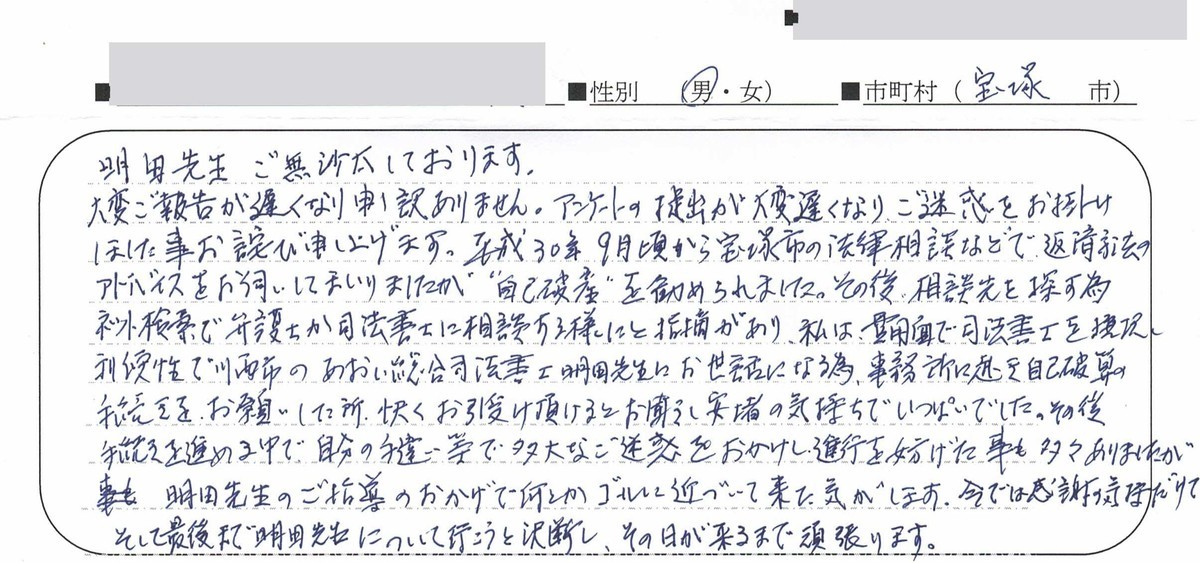 ■性別 (男・女) ■市町村 (宝塚 市)
明田先生 ご無沙汰しております。
大変ご報告が遅くなり申し訳ありません。アンケートの提出が大変遅くなり、ご迷惑をお掛け
しました事お詫び申し上げます。平成30年9月頃から宝塚市の法律相談などで返済方法の
アドバイスをお伺いしてまいりましたが“自己破産”を勧められました。その後、相談先を探す為
ネット検索で弁護士か司法書士に相談する様にと指摘があり、私は、費用面で司法書士を選択し
利便性で川西市のあおい総合司法書士明田先生にお世話になる為、事務所に赴き自己破算の
手続きを、お願いした所、快くお引受け頂けるとお聞きし安堵の気持ちでいっぱいでした。その後
手続きを進める中で、自分の手違い等で多大なご迷惑をおかけし進行を妨げた事も多々ありましたが
明田先生のご指導のおかげで何とかゴールに近づいて来た気がします。今では感謝の気持だけで
そして最後まで明田先生について行こうと決断し、その日が来るまで頑張ります。